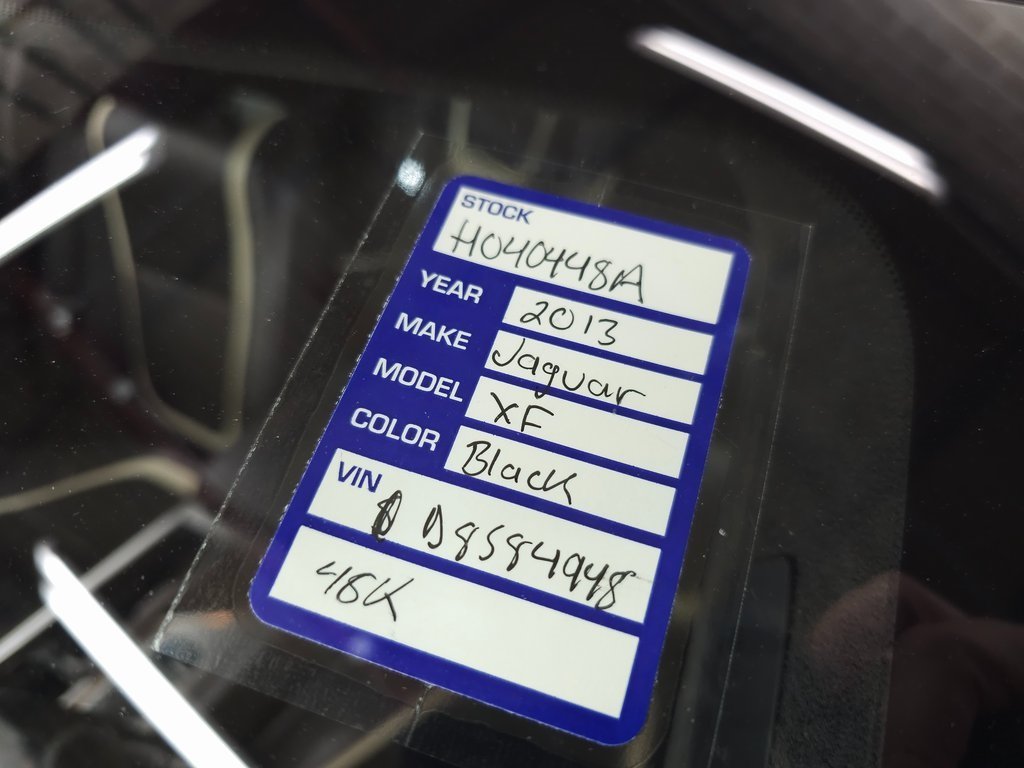 STOCK
H040448A
YEAR 2013
MAKE Jaguar
MODEL XF
COLOR Black
VIN
D8S84948
48K